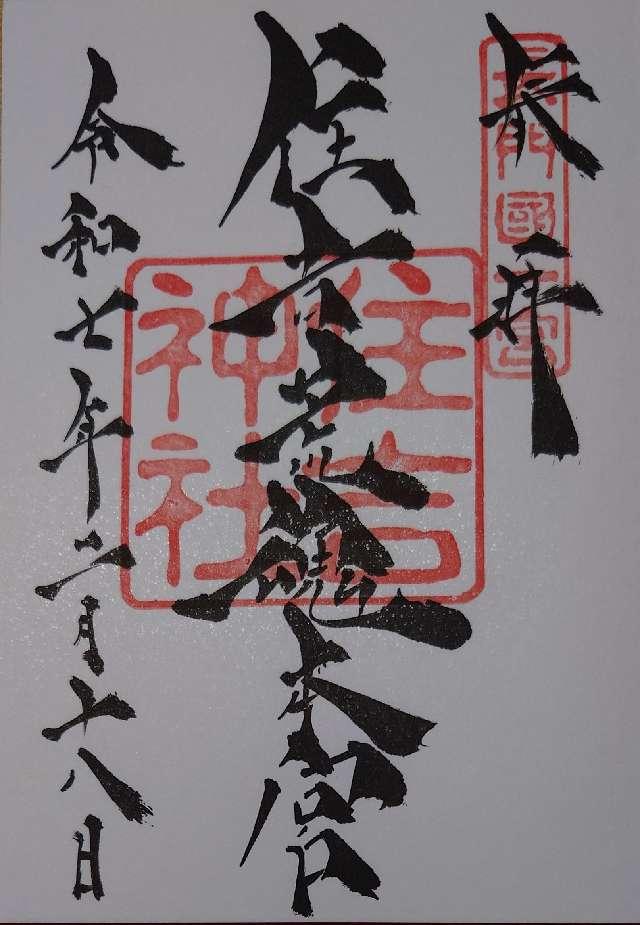 奉拝
長門國一宮
住吉荒魂本宮
住吉神社
令和七年二月十八日